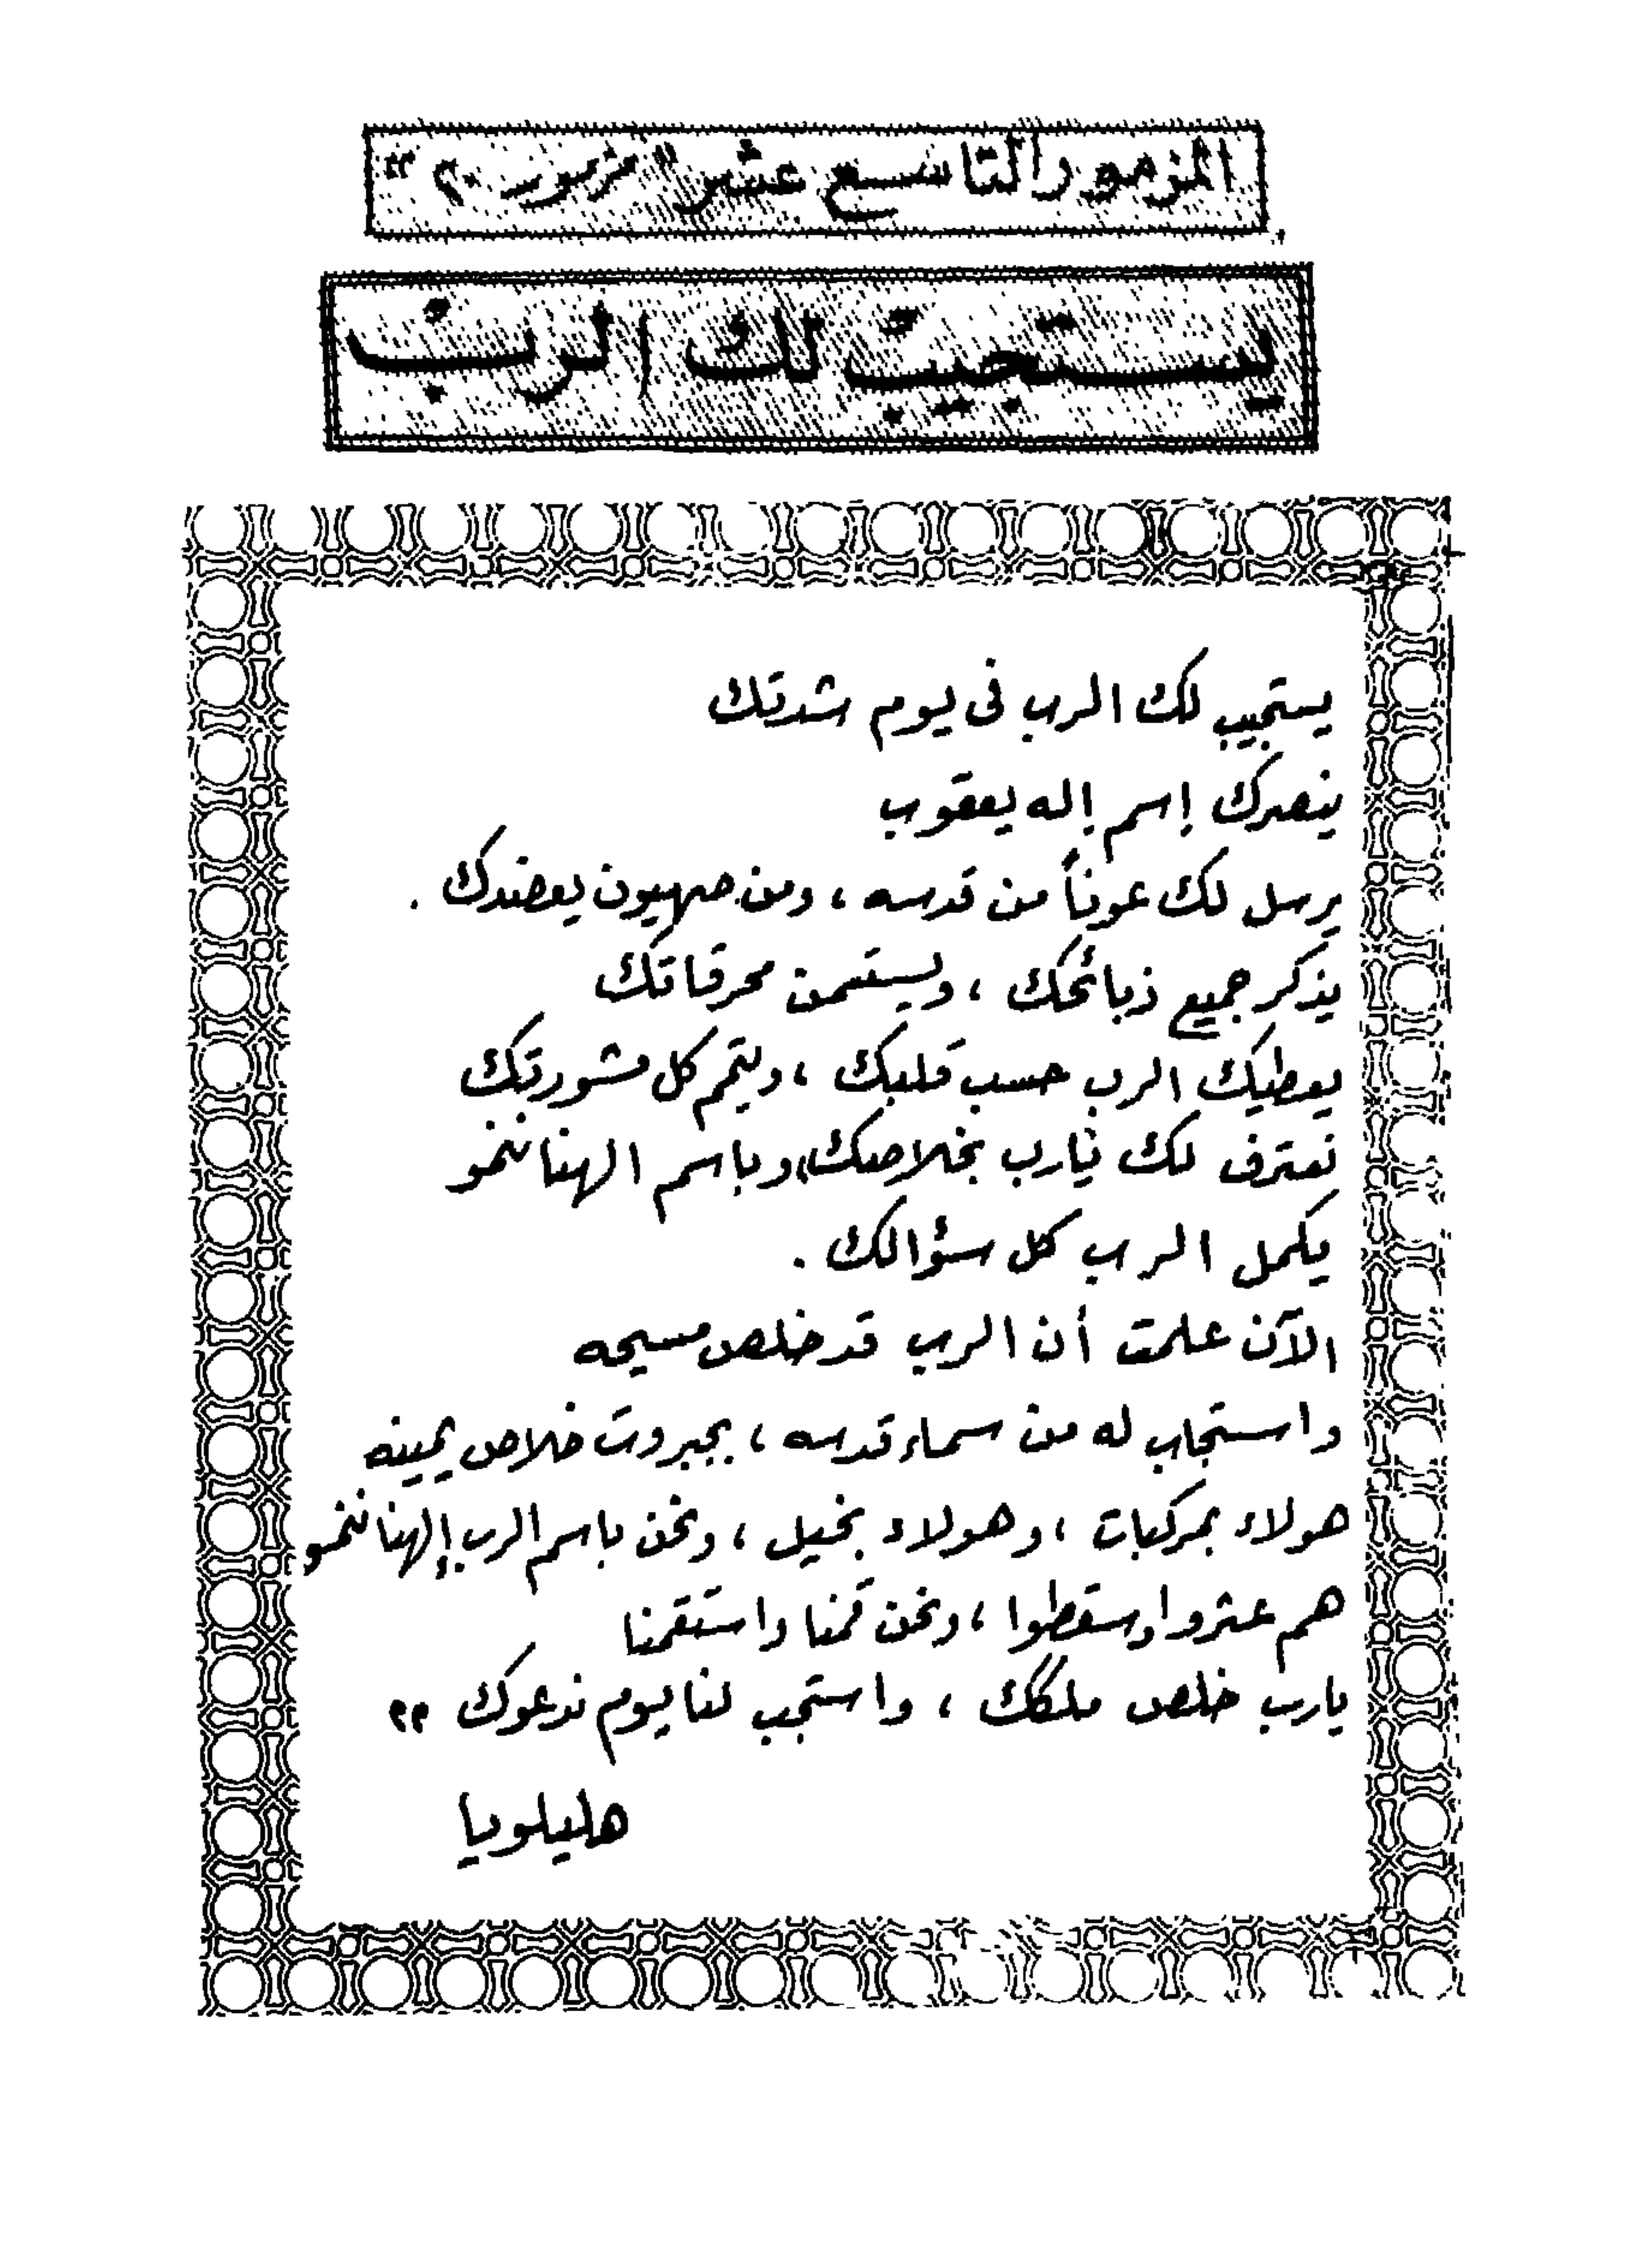 المزمور التاسع عشر "مزمور ٢٠"
يستجيب لك الرب
يستجيب لك الرب فى يوم شدتك
ينصرك إسم إله يعقوب
يرسل لك عوناً من قدسه ، ومن صهيون يعضدك .
يذكر جميع ذبائحك ، ويستسمن محرقاتك
يعطيك الرب حسب قلبك ، ويتمم كل مشورتك
نعترف لك يارب بخلاصك، وباسم الهنا ننمو
يكمل الرب كل سؤالك .
الآن علمت أن الرب قد خلص مسيحه
واستجاب له من سماء قدسه ، بجبروت خلاص يمينه
هولاء بمركبات ، وهولاء بخيل ، ونحن باسم الرب إلهنا ننمو
هم عثروا وسقطوا ، ونحن قمنا واستقمنا
يارب خلص ملكك ، واستجب لنا يوم ندعوك ،،
هليلويا